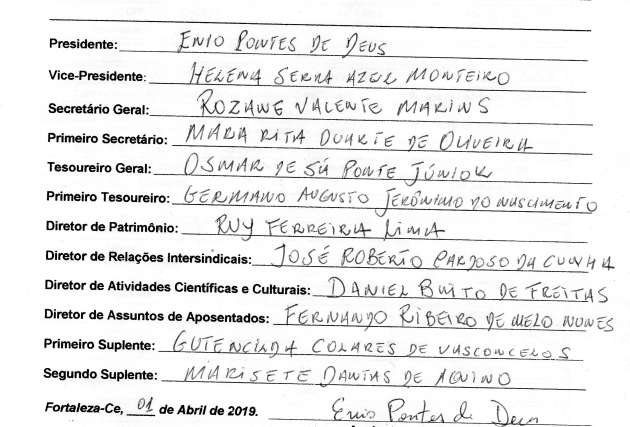 Presidente: ENIO PONTES DE DEUS
Vice-Presidente: HELENA SERRA AZUL MONTEIRO
Secretário Geral: ROZANE VALENTE MARINS
Primeiro Secretário: MARA RITA DUARTE DE OLIVEIRA
Tesoureiro Geral: OSMAR DE SÁ PONTE JÚNIOR
Primeiro Tesoureiro: GERMANO AUGUSTO JERÔNIMO DO NASCIMENTO
Diretor de Patrimônio: RUY FERREIRA LIMA
Diretor de Relações Intersindicais: JOSÉ ROBERTO CARDOSO DA CUNHA
Diretor de Atividades Científicas e Culturais: DANIEL BRITO DE FREITAS
Diretor de Assuntos de Aposentados: FERNANDO RIBEIRO DE MELO NUNES
Primeiro Suplente: GUTENCILDA COLARES DE VASCONCELOS
Segundo Suplente: MARISETE DANTAS DE AQUINO
Fortaleza-Ce, 01 de Abril de 2019. Enio Pontes de Deus